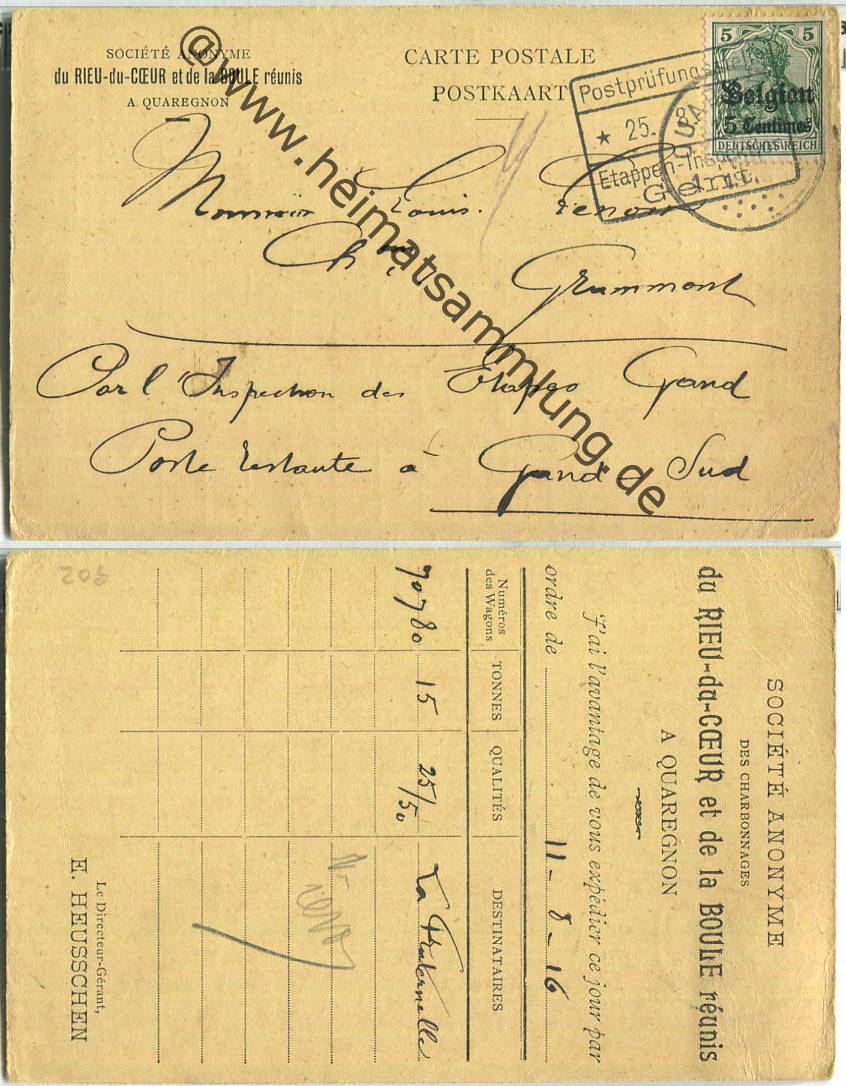 SOCIÉTÉ ANONYME
du RIEU-du-CŒUR et de la BOULE réunis
A QUAREGNON
CARTE POSTALE
POSTKAART
5 5
Belgien
5 Centimes
DEUTSCHES REICH
Postprüfungsstelle
* 25. 8
Etappen-Insp.
Gent.
@www.heimatsammlung.de
Monsieur Louis
Ch
Grammont
Par l'Inspection des Etapes Gand
Poste restante à Gand Sud
SOCIÉTÉ ANONYME
DES CHARBONNAGES
du RIEU-du-CŒUR et de la BOULE réunis
A QUAREGNON
J'ai l'avantage de vous expédier ce jour par
ordre de 11-8-16
Numéros des Wagons TONNES QUALITÉS DESTINATAIRES
70780 15 25/50 La Fraternelle
Le Directeur-Gérant,
E. HEUSSCHEN
205